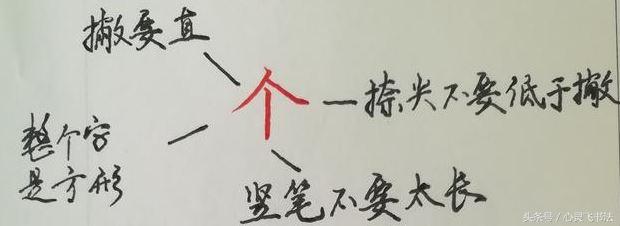 撇要直
个
捺尖不要低于撇
整个字
是方形
竖笔不要太长
头条号/心灵飞书法